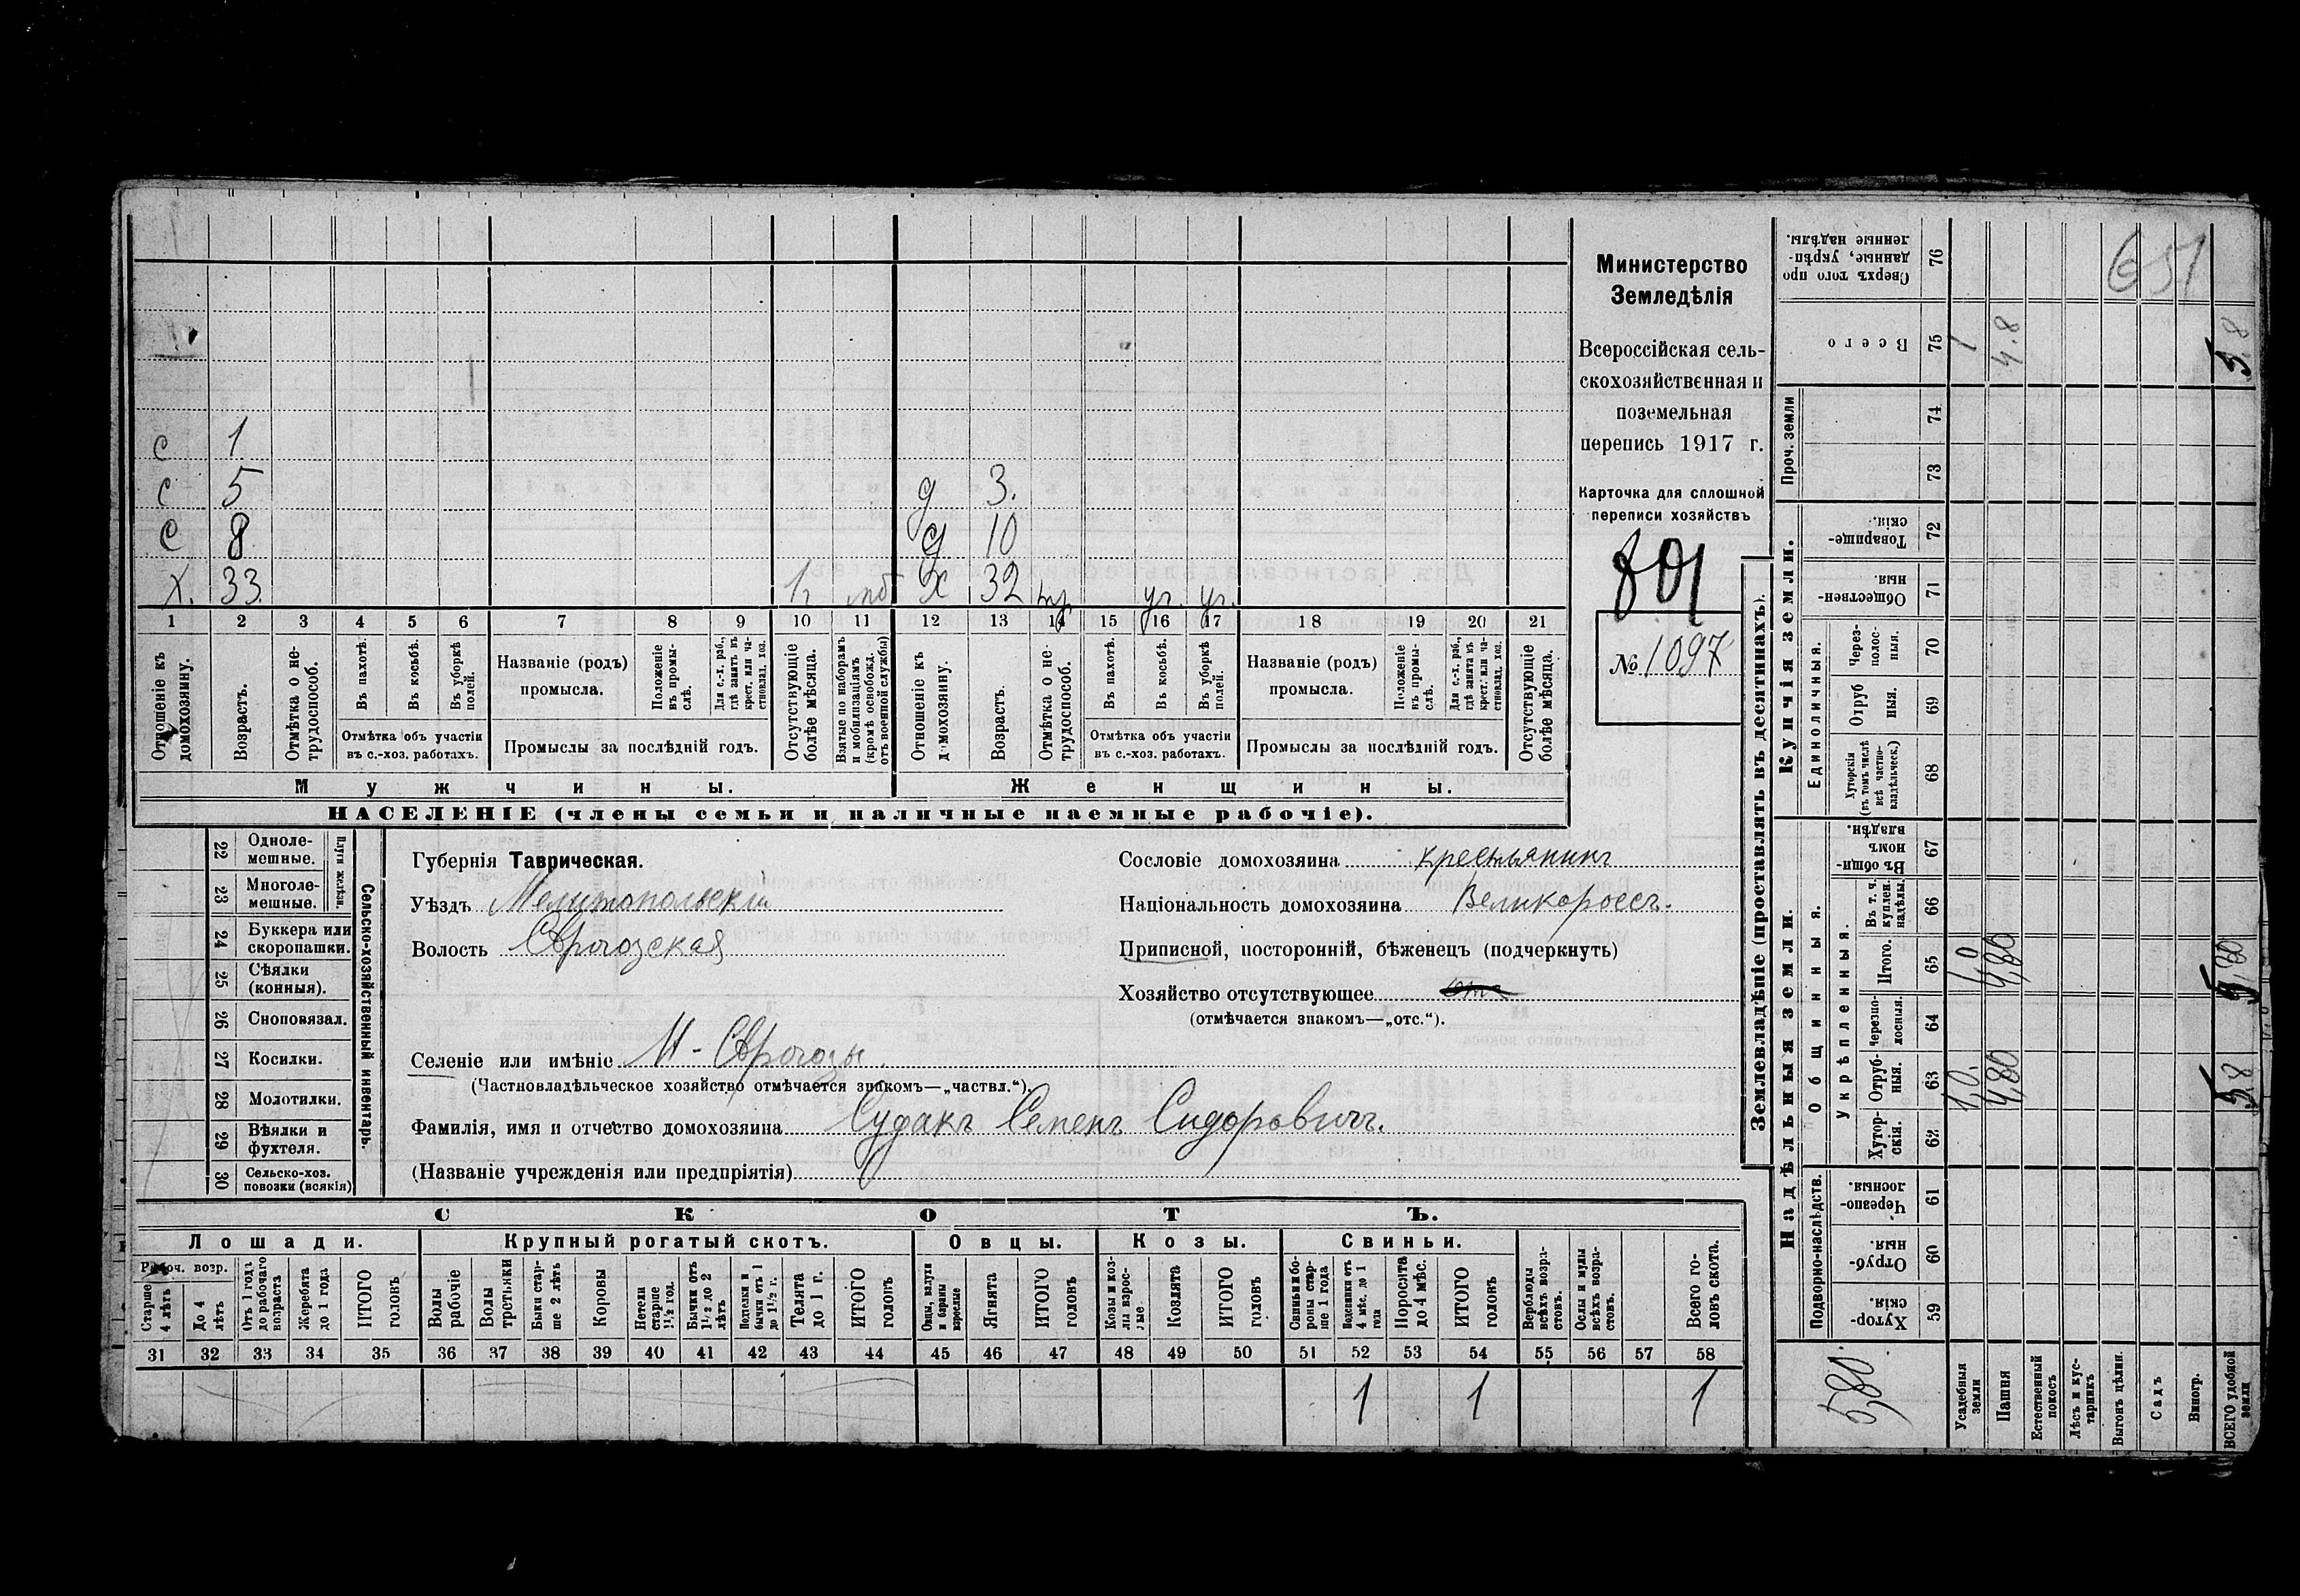 с 1
с 5 д 3.
с 8 д 10
х. 33. 1г мб х 32 уг. уг.
1 2 3 4 5 6 7 8 9 10 11 12 13 14 15 16 17 18 19 20 21
Отношеніе къ домохозяину.
Возрастъ.
Отмѣтка о не-трудоспособ.
Въ пахотѣ.
Въ косьбѣ.
Въ уборкѣ полей.
Отмѣтка объ участіи
въ с.-хоз. работахъ.
Названіе (родъ)
промысла.
Положеніе въ промы-слѣ.
Для с.-х. раб., гдѣ занятъ въ крест. или ча-стновлад. хоз.
Промыслы за послѣдній годъ.
Отсутствующіе болѣе мѣсяца.
Взятые по наборамъ и мобилизаціямъ (кромѣ освобожд. отъ военной службы)
Отношеніе къ домохозяину.
Возрастъ.
Отмѣтка о не-трудоспособ.
Въ пахотѣ.
Въ косьбѣ.
Въ уборкѣ полей.
Отмѣтка объ участіи
въ с.-хоз. работахъ.
Названіе (родъ)
промысла.
Положеніе въ промы-слѣ.
Для с.-х. раб., гдѣ занята въ крест. или ча-стновлад. хоз.
Промыслы за послѣдній годъ.
Отсутствующіе болѣе мѣсяца.
Мужчины. Женщины.
НАСЕЛЕНІЕ (члены семьи и наличные наемные рабочіе).
Министерство
Земледѣлія
Всероссійская сель-
скохозяйственная и
поземельная
перепись 1917 г.
Карточка для сплошной
переписи хозяйствъ
801
№ 1097
22 Одноле-мешные.
23 Многоле-мешные.
Плуги желѣзн.
24 Буккера или скоропашки.
25 Сѣялки (конныя).
26 Сноповязал.
27 Косилки.
28 Молотилки.
29 Вѣялки и фухтеля.
30 Сельско-хоз. повозки (всякія)
Сельско-хозяйственный инвентарь.
Губернія Таврическая.
Уѣздъ Мелитопольскій
Волость Сѣрогозская
Селеніе или имѣніе Н-Сѣрогозы
(Частновладѣльческое хозяйство отмѣчается знакомъ—„частвл.“).
Фамилія, имя и отчество домохозяина Судакъ Семенъ Сидоровичъ.
(Названіе учрежденія или предпріятія)
Сословіе домохозяина крестьянинъ
Національность домохозяина Великороссъ.
Приписной, посторонній, бѣженецъ (подчеркнуть)
Хозяйство отсутствующее отс
(отмѣчается знакомъ—„отс.“).
СКОТЪ.
Лошади. Крупный рогатый скотъ. Овцы. Козы. Свиньи.
Рабоч. возр.
Старше 4 лѣтъ
До 4 лѣтъ
Отъ 1 года до рабочаго возраста
Жеребята до 1 года
ИТОГО головъ
Волы рабочіе
Волы третьяки
Быки стар-ше 2 лѣтъ
Коровы
Нетели старше 1½ год.
Бычки отъ 1½ до 2 лѣтъ
Подтелки и бычки отъ 1 до 1½ г.
Телята до 1 г.
ИТОГО головъ
Овцы, валухи и бараны взрослые
Ягнята
ИТОГО головъ
Козы и коз-лы взрос-лые
Козлята
ИТОГО головъ
Свиньи и бо-ровы стар-ше 1 года
Подсвинки отъ 4 мѣс. до 1 года
Поросята до 4 мѣс.
ИТОГО головъ
Верблюды всѣхъ возра-стовъ.
Ослы и мулы всѣхъ возра-стовъ.
Всего го-ловъ скота.
31 32 33 34 35 36 37 38 39 40 41 42 43 44 45 46 47 48 49 50 51 52 53 54 55 56 57 58
1 1 1
Землевладѣніе (проставлять въ десятинахъ).
Надѣльныя земли.
Купчія земли.
Проч. земли
Подворно-наслѣдств.
Общинныя.
Укрѣпленныя.
Единоличныя.
Хутор-скія. 59
Отруб-ныя. 60
Черезпо-лосныя. 61
Хутор-скія. 62
Отруб-ныя. 63
Черезпо-лосныя. 64
Итого. 65
Въ т. ч. куплен. надѣлы. 66
Въ общи-номъ владѣн. 67
Хуторскія (въ томъ числѣ всѣ частно-владѣльческ.) 68
Отруб ныя. 69
Через-полос-ныя. 70
Обществен-ныя. 71
Товарище-скія. 72
73
74
Всего 75
Сверхъ того про данные, укрѣп-ленные надѣлы. 76
651
5,80
Усадебныя земли 1,0. 1,0 1
Пашня 4,80 4,80 4.8
Естественный покосъ
Лѣсъ и кус-тарникъ
Выгонъ цѣлин.
Садъ
Виногр.
ВСЕГО удобной земли 5,8 5,80 5.8